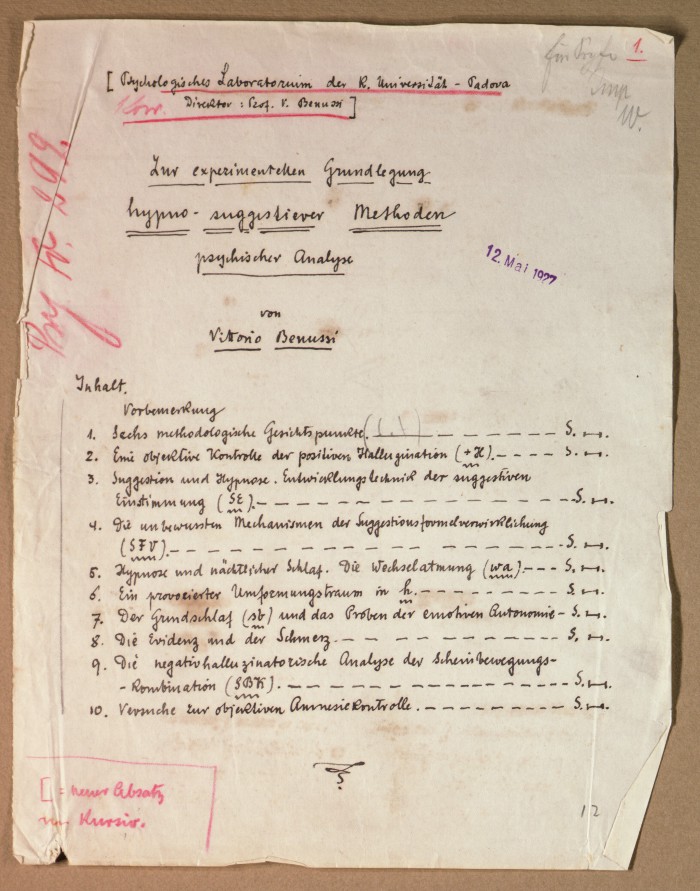 1.
[ Psychologisches Laboratorium der K. Universität - Padova
Direktor : Prof. V. Benussi ]
1 Korr.
W.
Zur experimentellen Grundlegung
hypno-suggestiever Methoden
psychischer Analyse
12. Mai 1927
von
Vittorio Benussi
Inhalt.
Vorbemerkung
1. Sechs methodologische Gesichtspunkte. S.
2. Eine objektive Kontrolle der positiven Halluzination (+H). S.
3. Suggestion und Hypnose. Entwicklungstechnik der suggestiven
Einstimmung (SE). S.
4. Die unbewussten Mechanismen der Suggestionsformelverwirklichung
(SFV). S.
5. Hypnose und nächtlicher Schlaf. Die Wechselatmung (wa). S.
6. Ein provozierter Umformungstraum in h. S.
7. Der Grundschlaf (sb) und das Proben der emotiven Autonomie - S.
8. Die Evidenz und der Schmerz. S.
9. Die negativhalluzinatorische Analyse der Scheinbewegungs-
-Kombination (SBK). S.
10. Versuche zur objektiven Amnesiekontrolle. S.
[ = neuer Absatz
Kursiv.
12